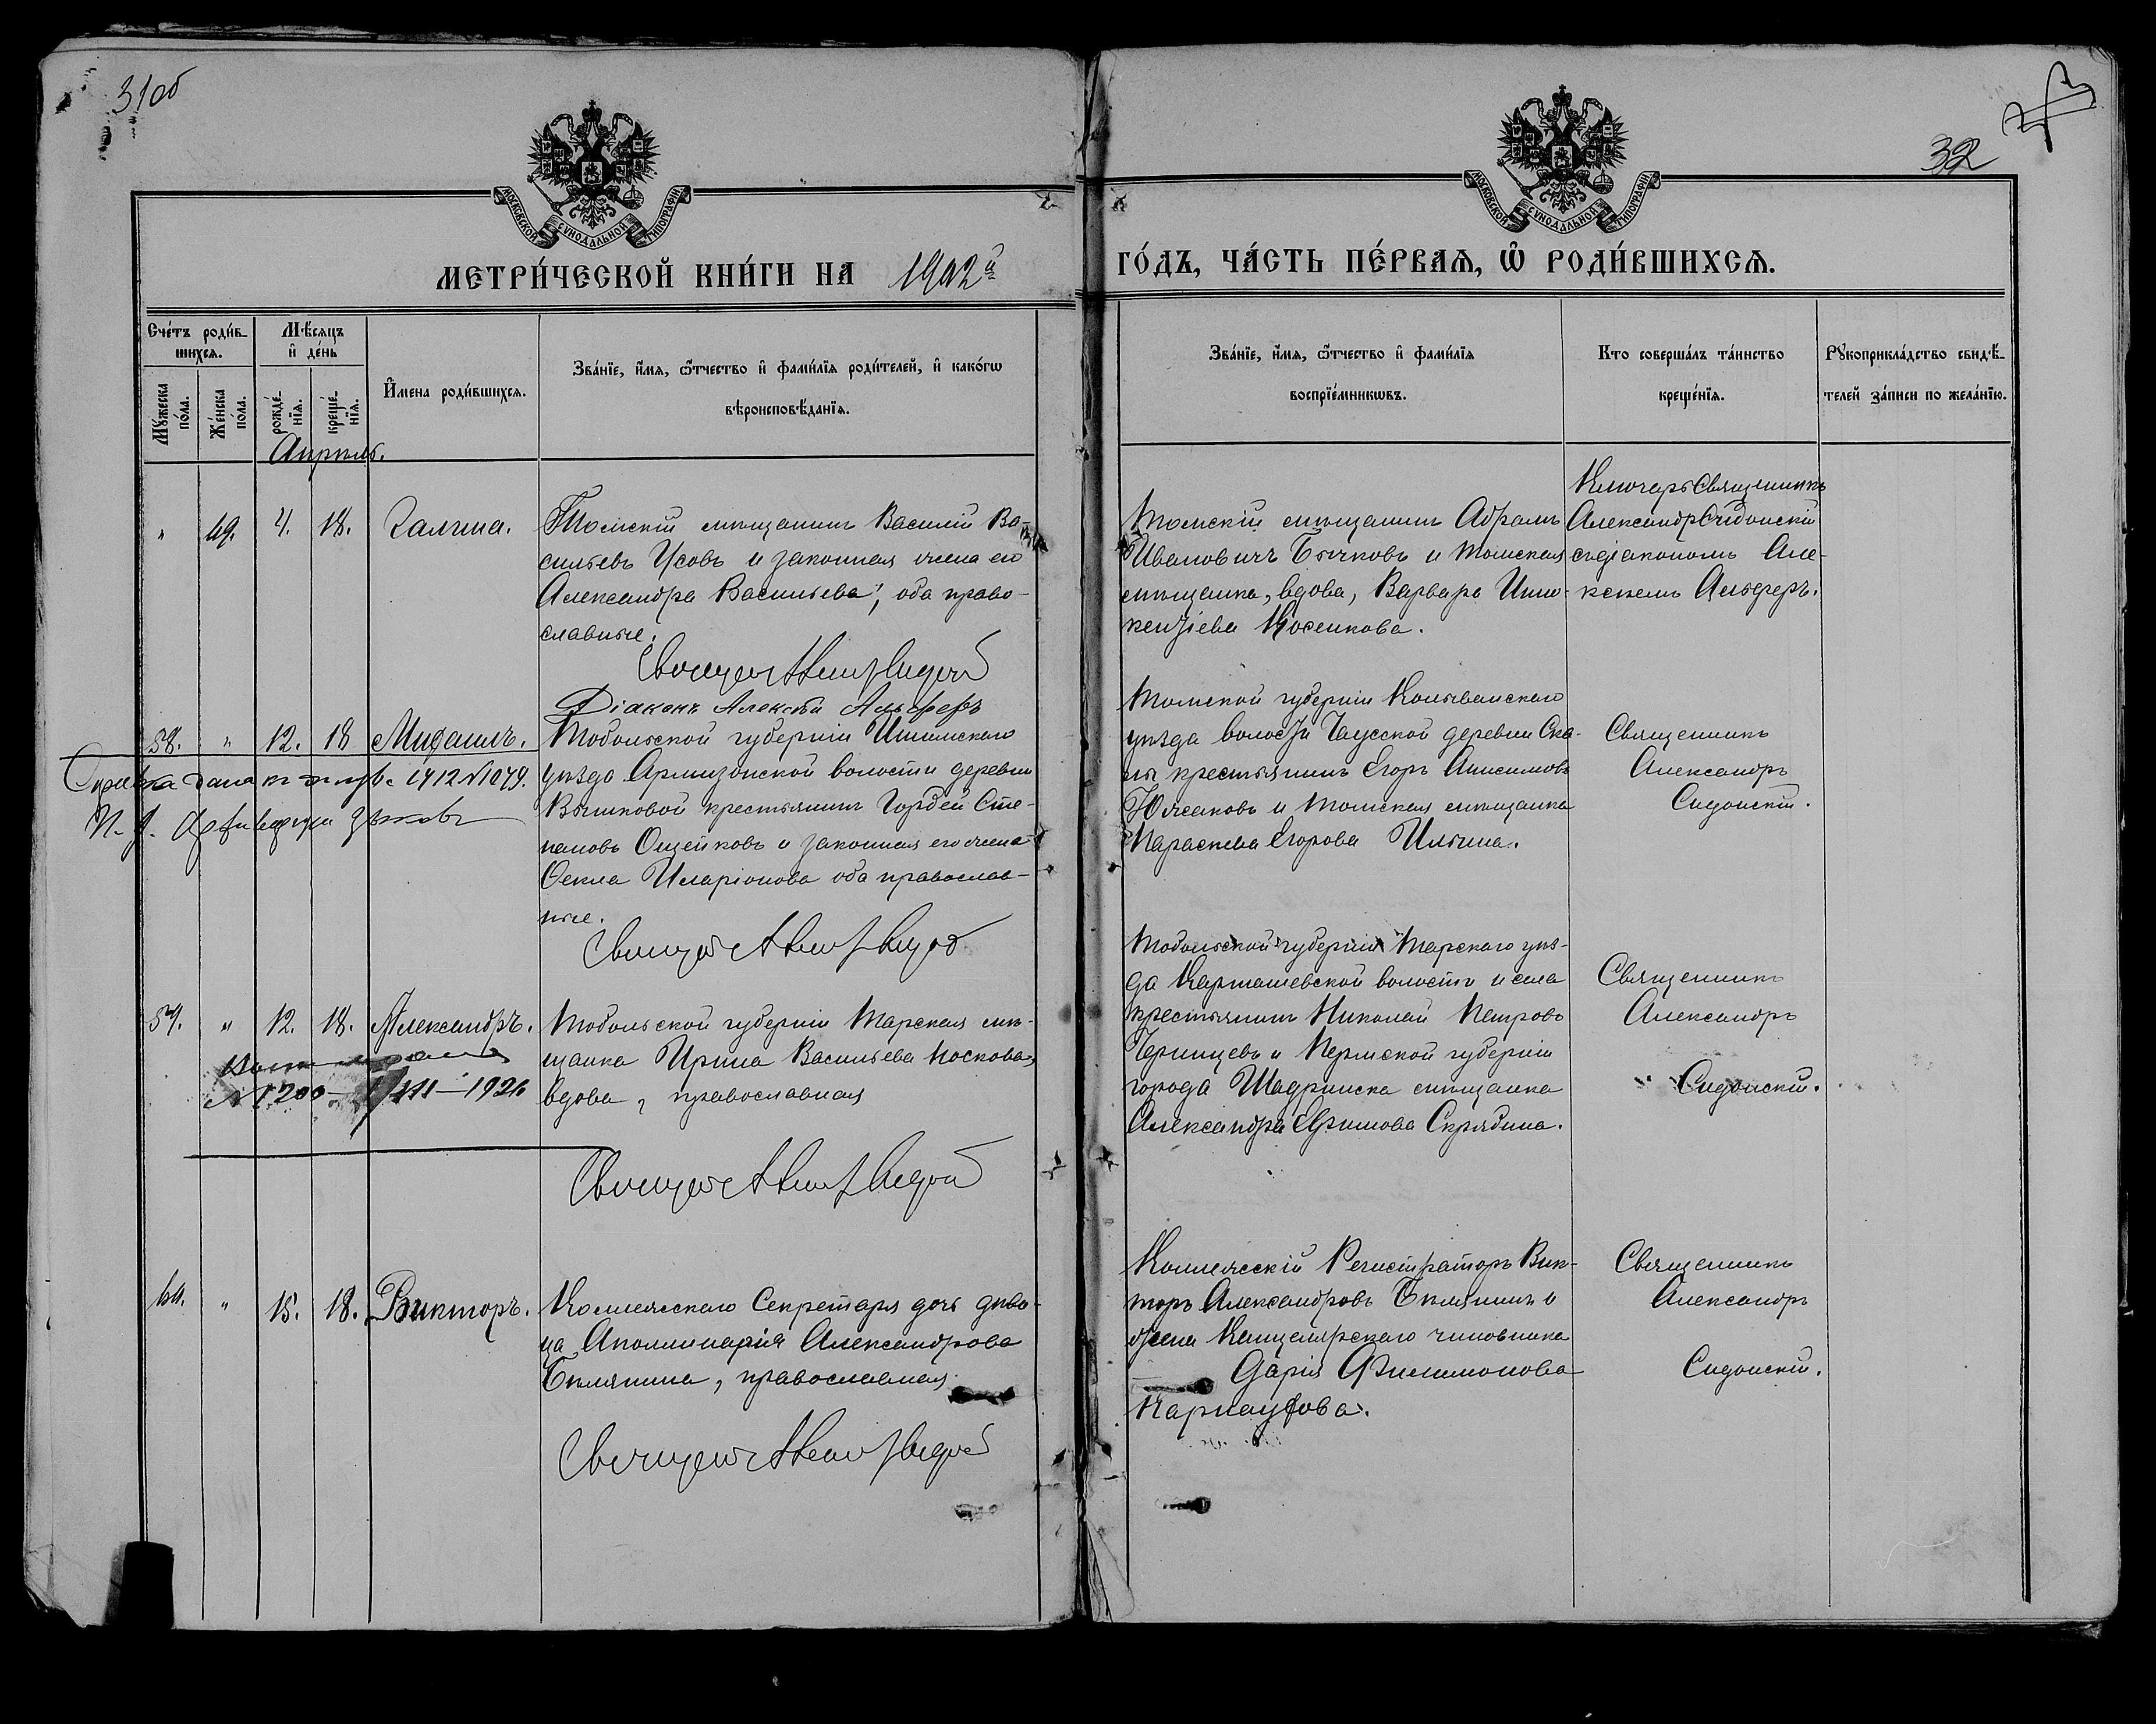 31об
32
МОСКОВСКОЙ СѴНОДАЛЬНОЙ ТИПОГРАФІИ
МОСКОВСКОЙ СѴНОДАЛЬНОЙ ТИПОГРАФІИ
МЕТРИ́ЧЕСКОЙ КНИ́ГИ НА 1902й
ГО́ДЪ, ЧА́СТЬ ПЕ́РВАѦ, Ѡ РОДИ́ВШИХСѦ.
Сче́тъ роди́в-
шихсѧ.
Мꙋ́жеска по́ла.
Же́нска по́ла.
Мѣ́сѧцъ
и҆ де́нь
рожде́-
нїѧ.
креще́-
нїѧ.
И҆мена роди́вшихсѧ.
Зва́нїе, и҆́мѧ, ѻ҆́тчество и҆ фами́лїѧ роди́телей, и҆ како́гѡ
вѣроисповѣ́данїѧ.
Зва́нїе, и҆́мѧ, ѻ҆́тчество и҆ фами́лїѧ
воспрїе́мникѡвъ.
Кто соверша́лъ та́инство
креще́нїѧ.
Рꙋкоприкла́дство свидѣ́-
телей за́писи по жела́нїю.
Апрѣль.
" 49. 4. 18. Галина.
Томскій мѣщанинъ Василій Ва-
сильевъ Усовъ и законная жена его
Александра Васильева, оба право-
славные.
Діаконъ Алексѣй Альферъ
Томскій мѣщанинъ Абрамъ
Ивановичъ Бычковъ и томская
мѣщанка, вдова, Варвара Инно-
кентіева Косенкова.
Ключарь Священникъ
Александръ Сидонскій
съ діакономъ Але-
ксѣемъ Альферъ.
58. " 12. 18 Михаилъ.
Справка дана въ 1912 № 1079.
Тобольской губерніи Ишимскаго
уѣзда Армизонской волости деревни
Вьялковой крестьянинъ Гордей Сте-
пановъ Ощепковъ и законная его жена
Ѳекла Иларіонова оба православ-
ные.
Томской губерніи Колыванскаго
уѣзда волости Чаусской деревни Ска-
лы крестьянинъ Егоръ Анисимовъ
Южаковъ и томская мѣщанка
Параскева Егорова Ильина.
Священникъ
Александръ
Сидонскій.
59. " 12. 18. Александръ.
№ 1200 — VIII — 1926
Тобольской губерніи Тарская мѣ-
щанка Ирина Васильева Носкова,
вдова, православная
Тобольской губерніи Тарскаго уѣз-
да Карташевской волости и села
крестьянинъ Николай Петровъ
Черницевъ и Пермской губерніи
города Шадринска мѣщанка
Александра Ефимова Скрябина.
Священникъ
Александръ
Сидонскій.
60. " 15. 18. Викторъ.
Коллежскаго Секретаря дочь дѣви-
ца Аполлинарія Александрова
Бѣлянина, православная.
Коллежскій Регистраторъ Вик-
торъ Александровъ Бѣлянинъ и
жена Канцелярскаго чиновника
Дарія Филимонова
Карнаухова.
Священникъ
Александръ
Сидонскій.